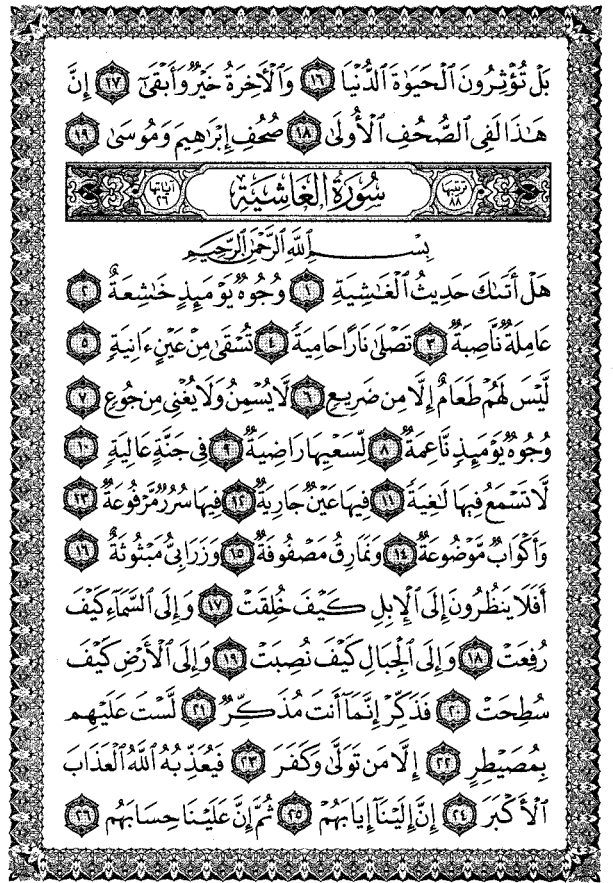 بَلْ تُؤْثِرُونَ ٱلْحَيَوٰةَ ٱلدُّنْيَا ١٦ وَٱلْـَٔاخِرَةُ خَيْرٌ وَأَبْقَىٰٓ ١٧ إِنَّ
هَـٰذَا لَفِى ٱلصُّحُفِ ٱلْأُولَىٰ ١٨ صُحُفِ إِبْرَٰهِيمَ وَمُوسَىٰ ١٩
ترتيبها ٨٨ سُورَةُ الغَاشِيَةِ آياتها ٢٦
بِسْمِ ٱللَّهِ ٱلرَّحْمَـٰنِ ٱلرَّحِيمِ
هَلْ أَتَىٰكَ حَدِيثُ ٱلْغَـٰشِيَةِ ١ وُجُوهٌ يَوْمَئِذٍ خَـٰشِعَةٌ ٢
عَامِلَةٌ نَّاصِبَةٌ ٣ تَصْلَىٰ نَارًا حَامِيَةً ٤ تُسْقَىٰ مِنْ عَيْنٍ ءَانِيَةٍ ٥
لَّيْسَ لَهُمْ طَعَامٌ إِلَّا مِن ضَرِيعٍ ٦ لَّا يُسْمِنُ وَلَا يُغْنِى مِن جُوعٍ ٧
وُجُوهٌ يَوْمَئِذٍ نَّاعِمَةٌ ٨ لِّسَعْيِهَا رَاضِيَةٌ ٩ فِى جَنَّةٍ عَالِيَةٍ ١٠
لَّا تَسْمَعُ فِيهَا لَـٰغِيَةً ١١ فِيهَا عَيْنٌ جَارِيَةٌ ١٢ فِيهَا سُرُرٌ مَّرْفُوعَةٌ ١٣
وَأَكْوَابٌ مَّوْضُوعَةٌ ١٤ وَنَمَارِقُ مَصْفُوفَةٌ ١٥ وَزَرَابِىُّ مَبْثُوثَةٌ ١٦
أَفَلَا يَنظُرُونَ إِلَى ٱلْإِبِلِ كَيْفَ خُلِقَتْ ١٧ وَإِلَى ٱلسَّمَآءِ كَيْفَ
رُفِعَتْ ١٨ وَإِلَى ٱلْجِبَالِ كَيْفَ نُصِبَتْ ١٩ وَإِلَى ٱلْأَرْضِ كَيْفَ
سُطِحَتْ ٢٠ فَذَكِّرْ إِنَّمَآ أَنتَ مُذَكِّرٌ ٢١ لَّسْتَ عَلَيْهِم
بِمُصَيْطِرٍ ٢٢ إِلَّا مَن تَوَلَّىٰ وَكَفَرَ ٢٣ فَيُعَذِّبُهُ ٱللَّهُ ٱلْعَذَابَ
ٱلْأَكْبَرَ ٢٤ إِنَّ إِلَيْنَآ إِيَابَهُمْ ٢٥ ثُمَّ إِنَّ عَلَيْنَا حِسَابَهُم ٢٦